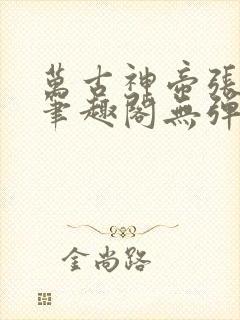 萬古神帝張
筆趣閣無彈
金尚路